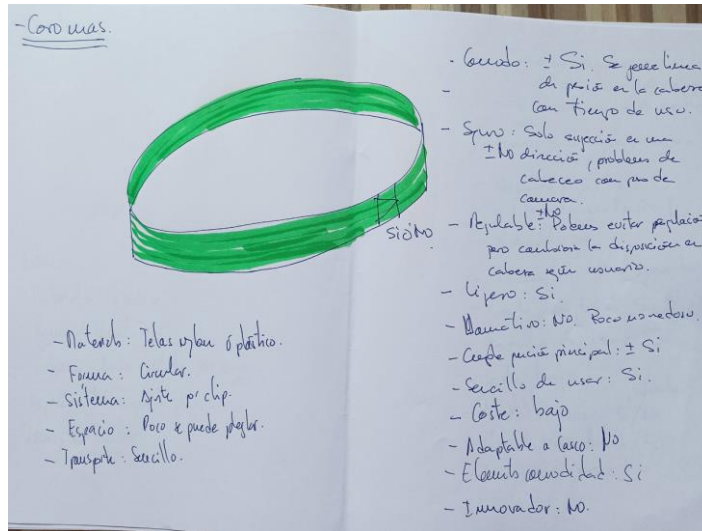 - Coronas.
SI ó NO
- Materials: Telas nylon ó plástico.
- Forma: Circular.
- Sistema: Ajuste por clip.
- Espacio: Poco se puede plegar.
- Transporte: Sencillo.
- Comodo: ± Si. Se genera linea
de presió en la cabeza
con tiempo de uso.
- Seguro: Solo sujección en una
± No direcció, problemas de
cabeceo con peso de
camara.
± No
- Regulable: Podemos evitar regulació
pero cambiaria la disposición en
cabeza según usuario.
- Ligero: Si.
- Llamativo: No. Poco novedoso.
- Cumple función principal: ± Si
- Sencillo de usar: Si.
- Coste: bajo
- Adaptable a casco: No
- Elemento comodidad: Si
- Innovador: No.